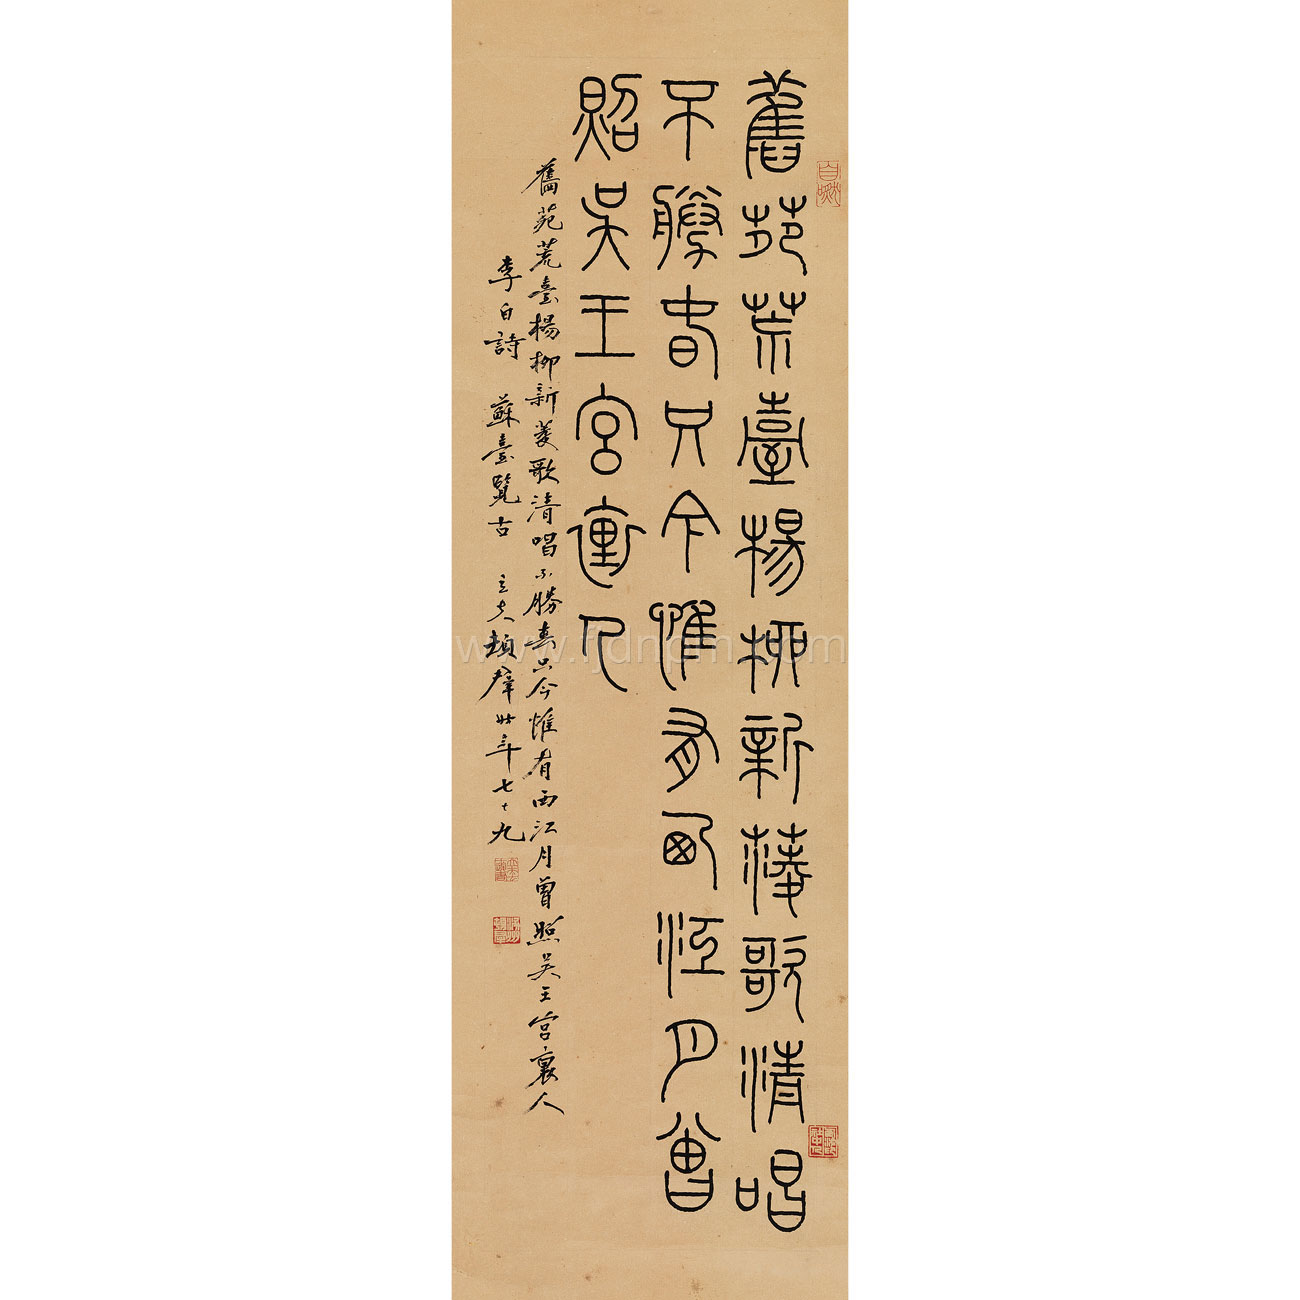 舊苑荒臺楊柳新蔆歌清唱
不勝春只今惟有西江月曾
照吳王宮裏人
舊苑荒臺楊柳新菱歌清唱不勝春只今惟有西江月曾照吳王宮裏人
李白詩 蘇臺覽古 立夫 年七十九
www.fjdnpm.com